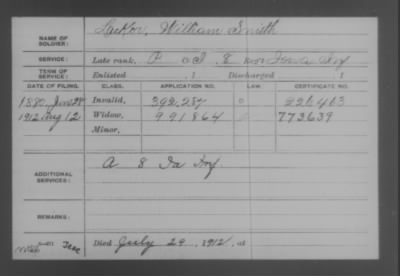 NAME OF SOLDIER: William Smith
SERVICE: Late rank, Iowa Inf
TERM OF SERVICE: Enlisted 1 Discharged 1
DATE OF FILING. CLASS. APPLICATION NO. LAW. CERTIFICATE NO.
1880, June 28 Invalid, 392,287
1912 Aug 12 Widow, 991864 773639
Minor,
ADDITIONAL SERVICES: A 8 Ia Inf.
REMARKS:
Died July 29, 1912, at